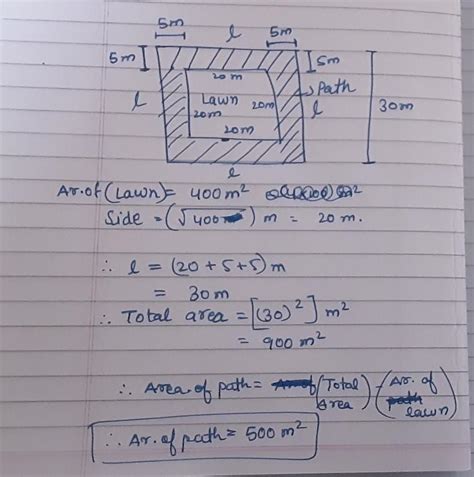 5m l 5m
5m 5m
20 m
→ Path
l Lawn 20m l 30m
20m
20m
l
Ar. of (Lawn) = 400 m²
Side = (√400) m = 20 m.
∴ l = (20 + 5 + 5) m
= 30 m
∴ Total area = [(30)²] m²
= 900 m²
∴ Area of path = (Total Area) - (Ar. of lawn)
∴ Ar. of path = 500 m²